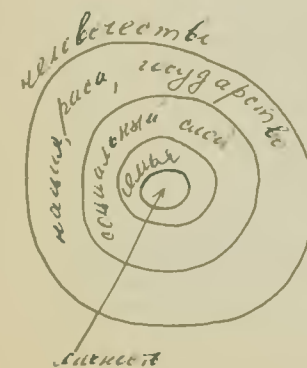 человечество
нация, раса, государство
социальный слой
семья
личность